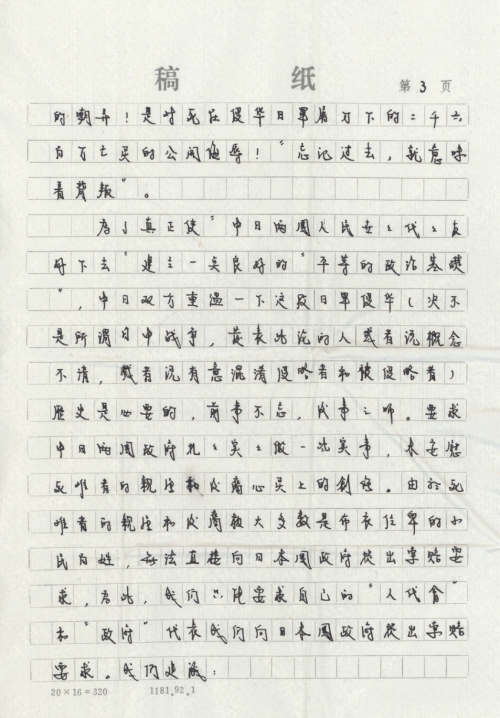 稿 纸
第 3 页
的嘲弄！是对死在侵华日军屠刀下的二千六
百万亡灵的公开侮辱！“忘记过去，就意味
着背叛”。
为了真正使“中日两国人民世々代々友
好下去”建立一
良好的“平等的政治基础
”，中日双方重温一下这段日军侵华（决不
是所谓日中战争，发表此论的人或者说概念
不清，或者说有意混淆侵略者和被侵略者）
歷史是必要的，前事不忘，后事之师。要求
中日两国政府扎々实々做一些实事，来安慰
死难者的親属和后裔心灵上的创伤。由於死
难者的親属和后裔极大多数是布衣位卑的小
民百姓，无法直接向日本國政府提出索赔要
求，为此，我们只能要求自己的“人代會”
和“政府”代表我们向日本國政府提出索赔
要求。我们建議：
20×16=320 1181.92.1